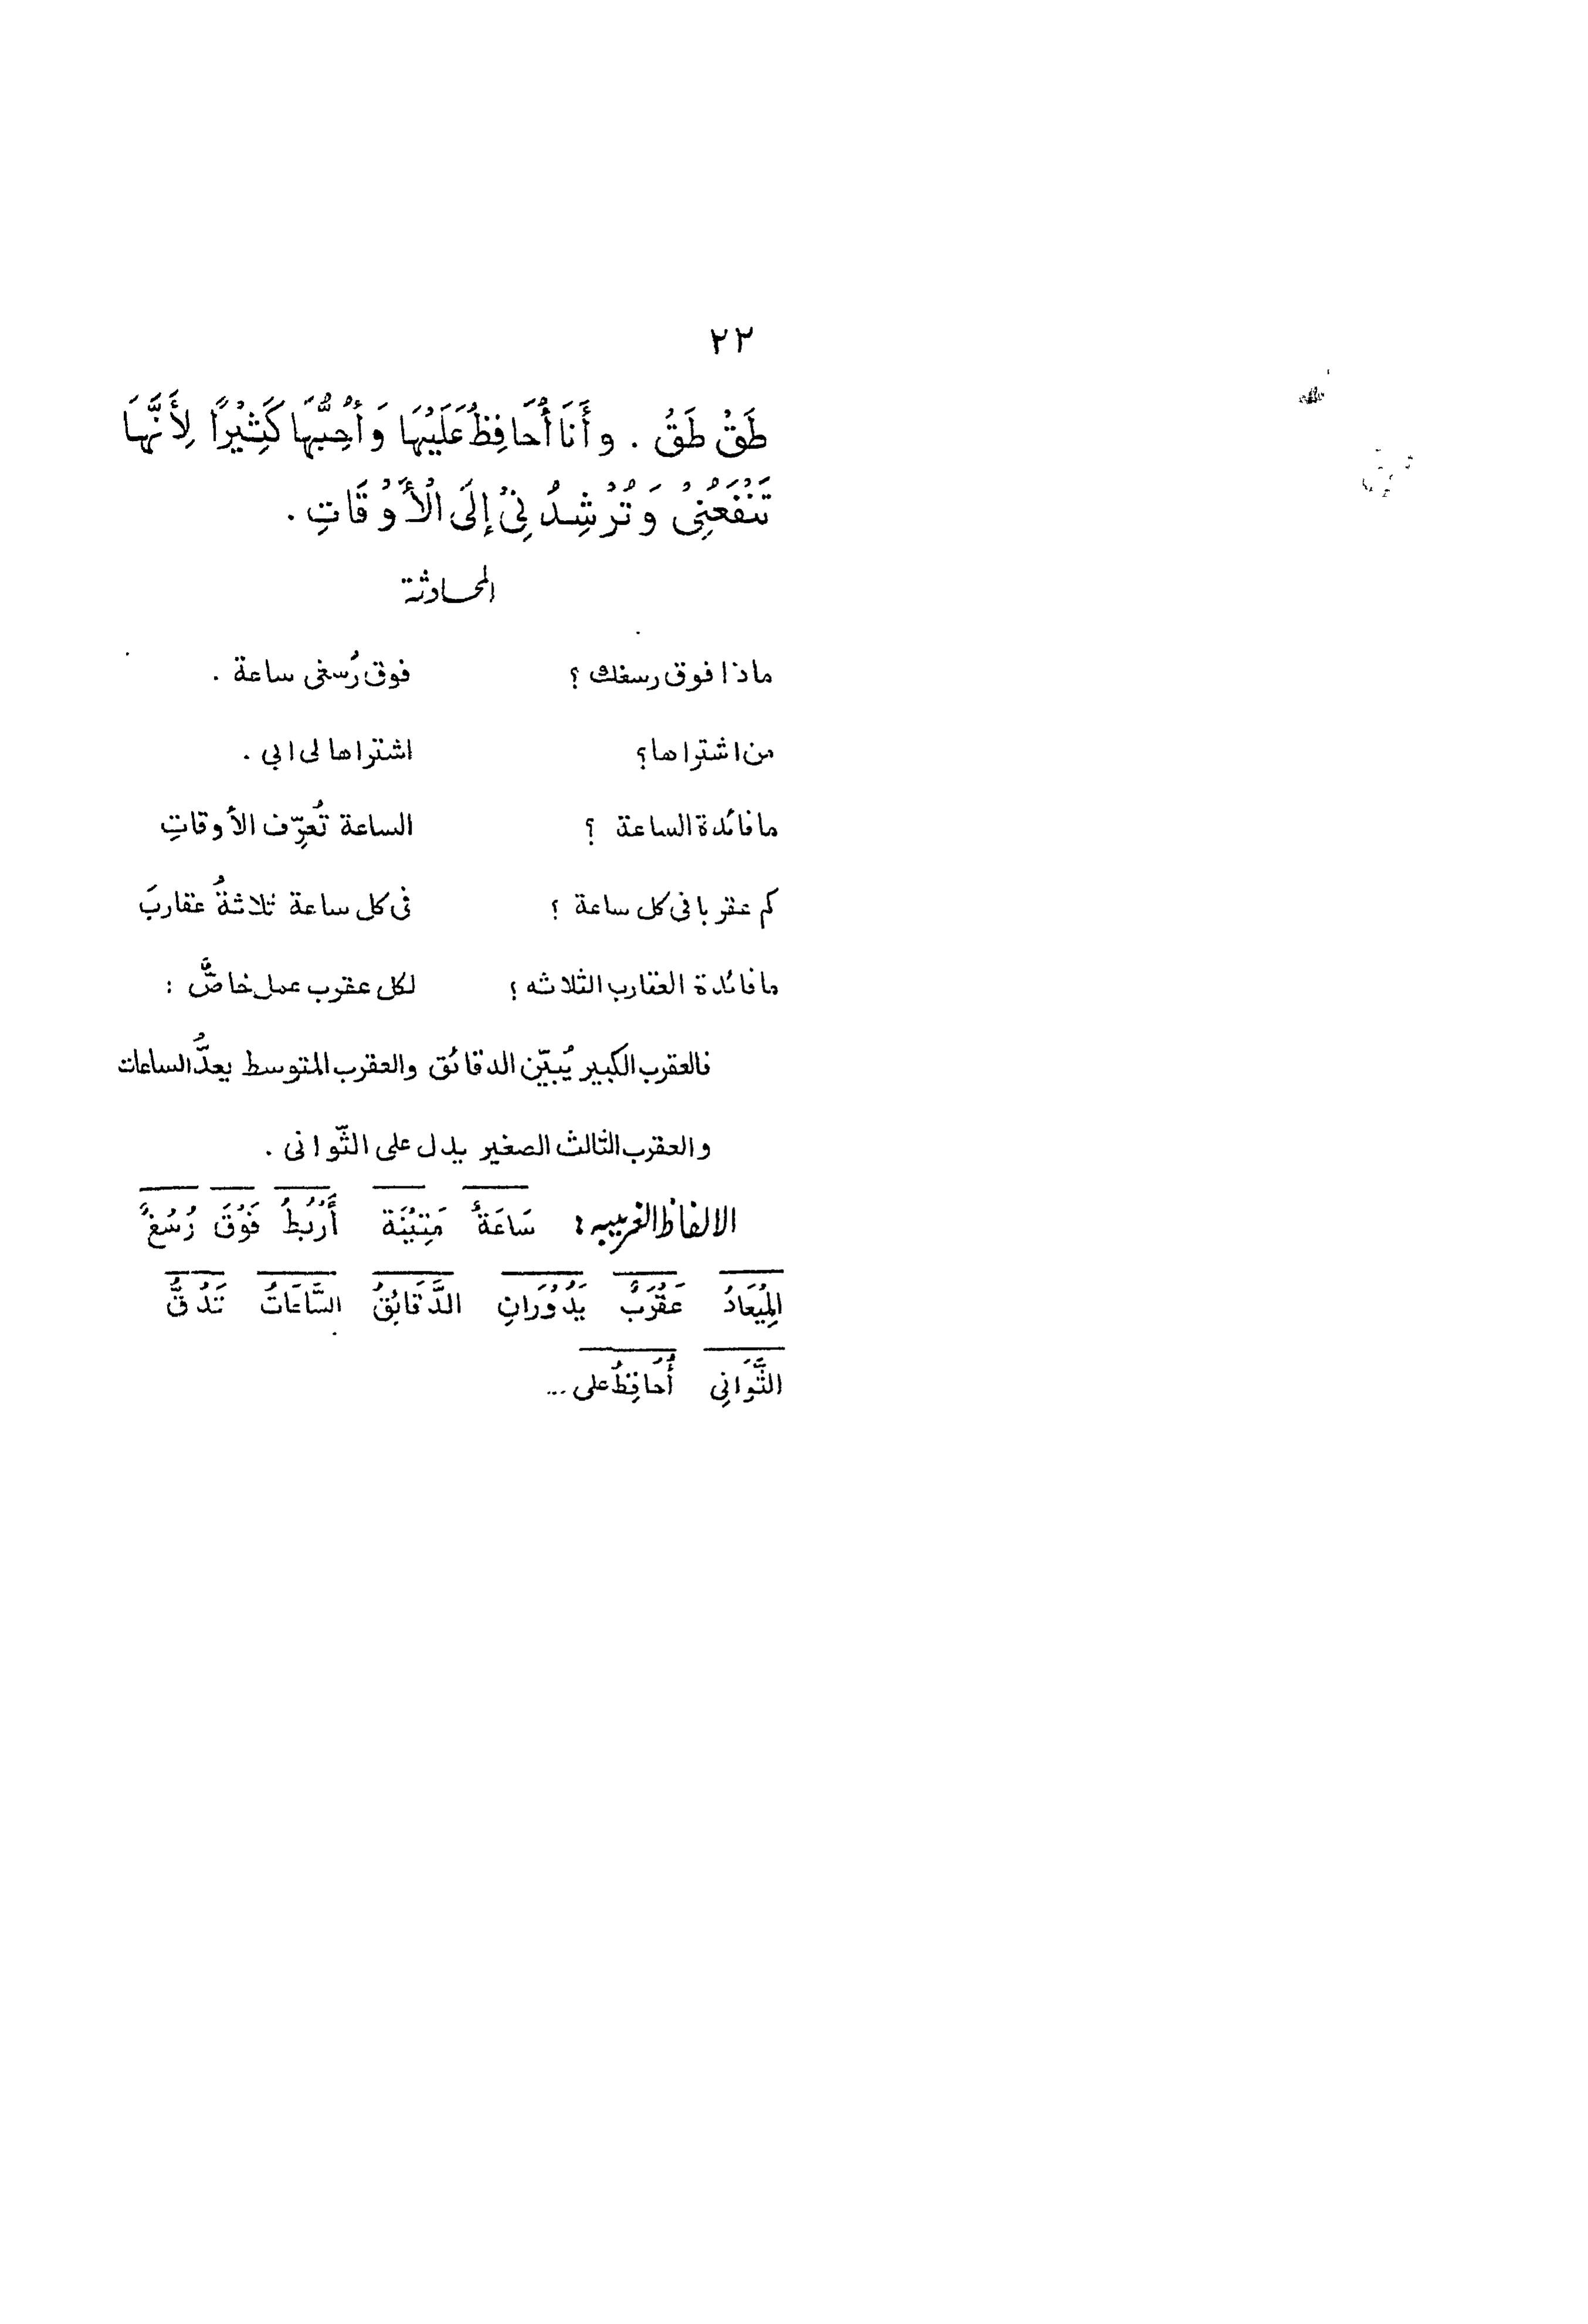 ٢٣
طَقْ طَقْ . وأَنَا أُحَافِظُ عَلَيْهَا وَأُحِبُّهَا كَثِيْرًا لِأَنَّهَا
تَنْفَعُنِيْ وَتُرْشِدُنِيْ إِلَى الْأَوْقَاتِ .
المحادثة
ماذا فوق رسغك ؟ فوق رُسغى ساعة .
من اشتراها؟ اشتراها لى ابي .
ما فائدة الساعة ؟ الساعة تُعرِّف الأوقاتِ
كم عقربا فى كل ساعة ؟ فى كل ساعة ثلاثةُ عقاربَ
ما فائدة العقارب الثلاثه ؟ لكل عقرب عمل خاصٌّ :
فالعقرب الكبير يُبيّن الدقائق والعقرب المتوسط يعدُّ الساعات
والعقرب الثالث الصغير يدل على الثّوانى .
الالفاظ الغريبه : سَاعَةٌ مَتِيْنَة أَرْبُطُ فَوْقَ رُسْغٌ
المِيْعَادُ عَقْرَبٌ يَدُوْرَانِ الدَّقَائِقُ السَّاعَاتُ تَدُقُّ
الثَّوَانِى أُحَافِظُ على ...